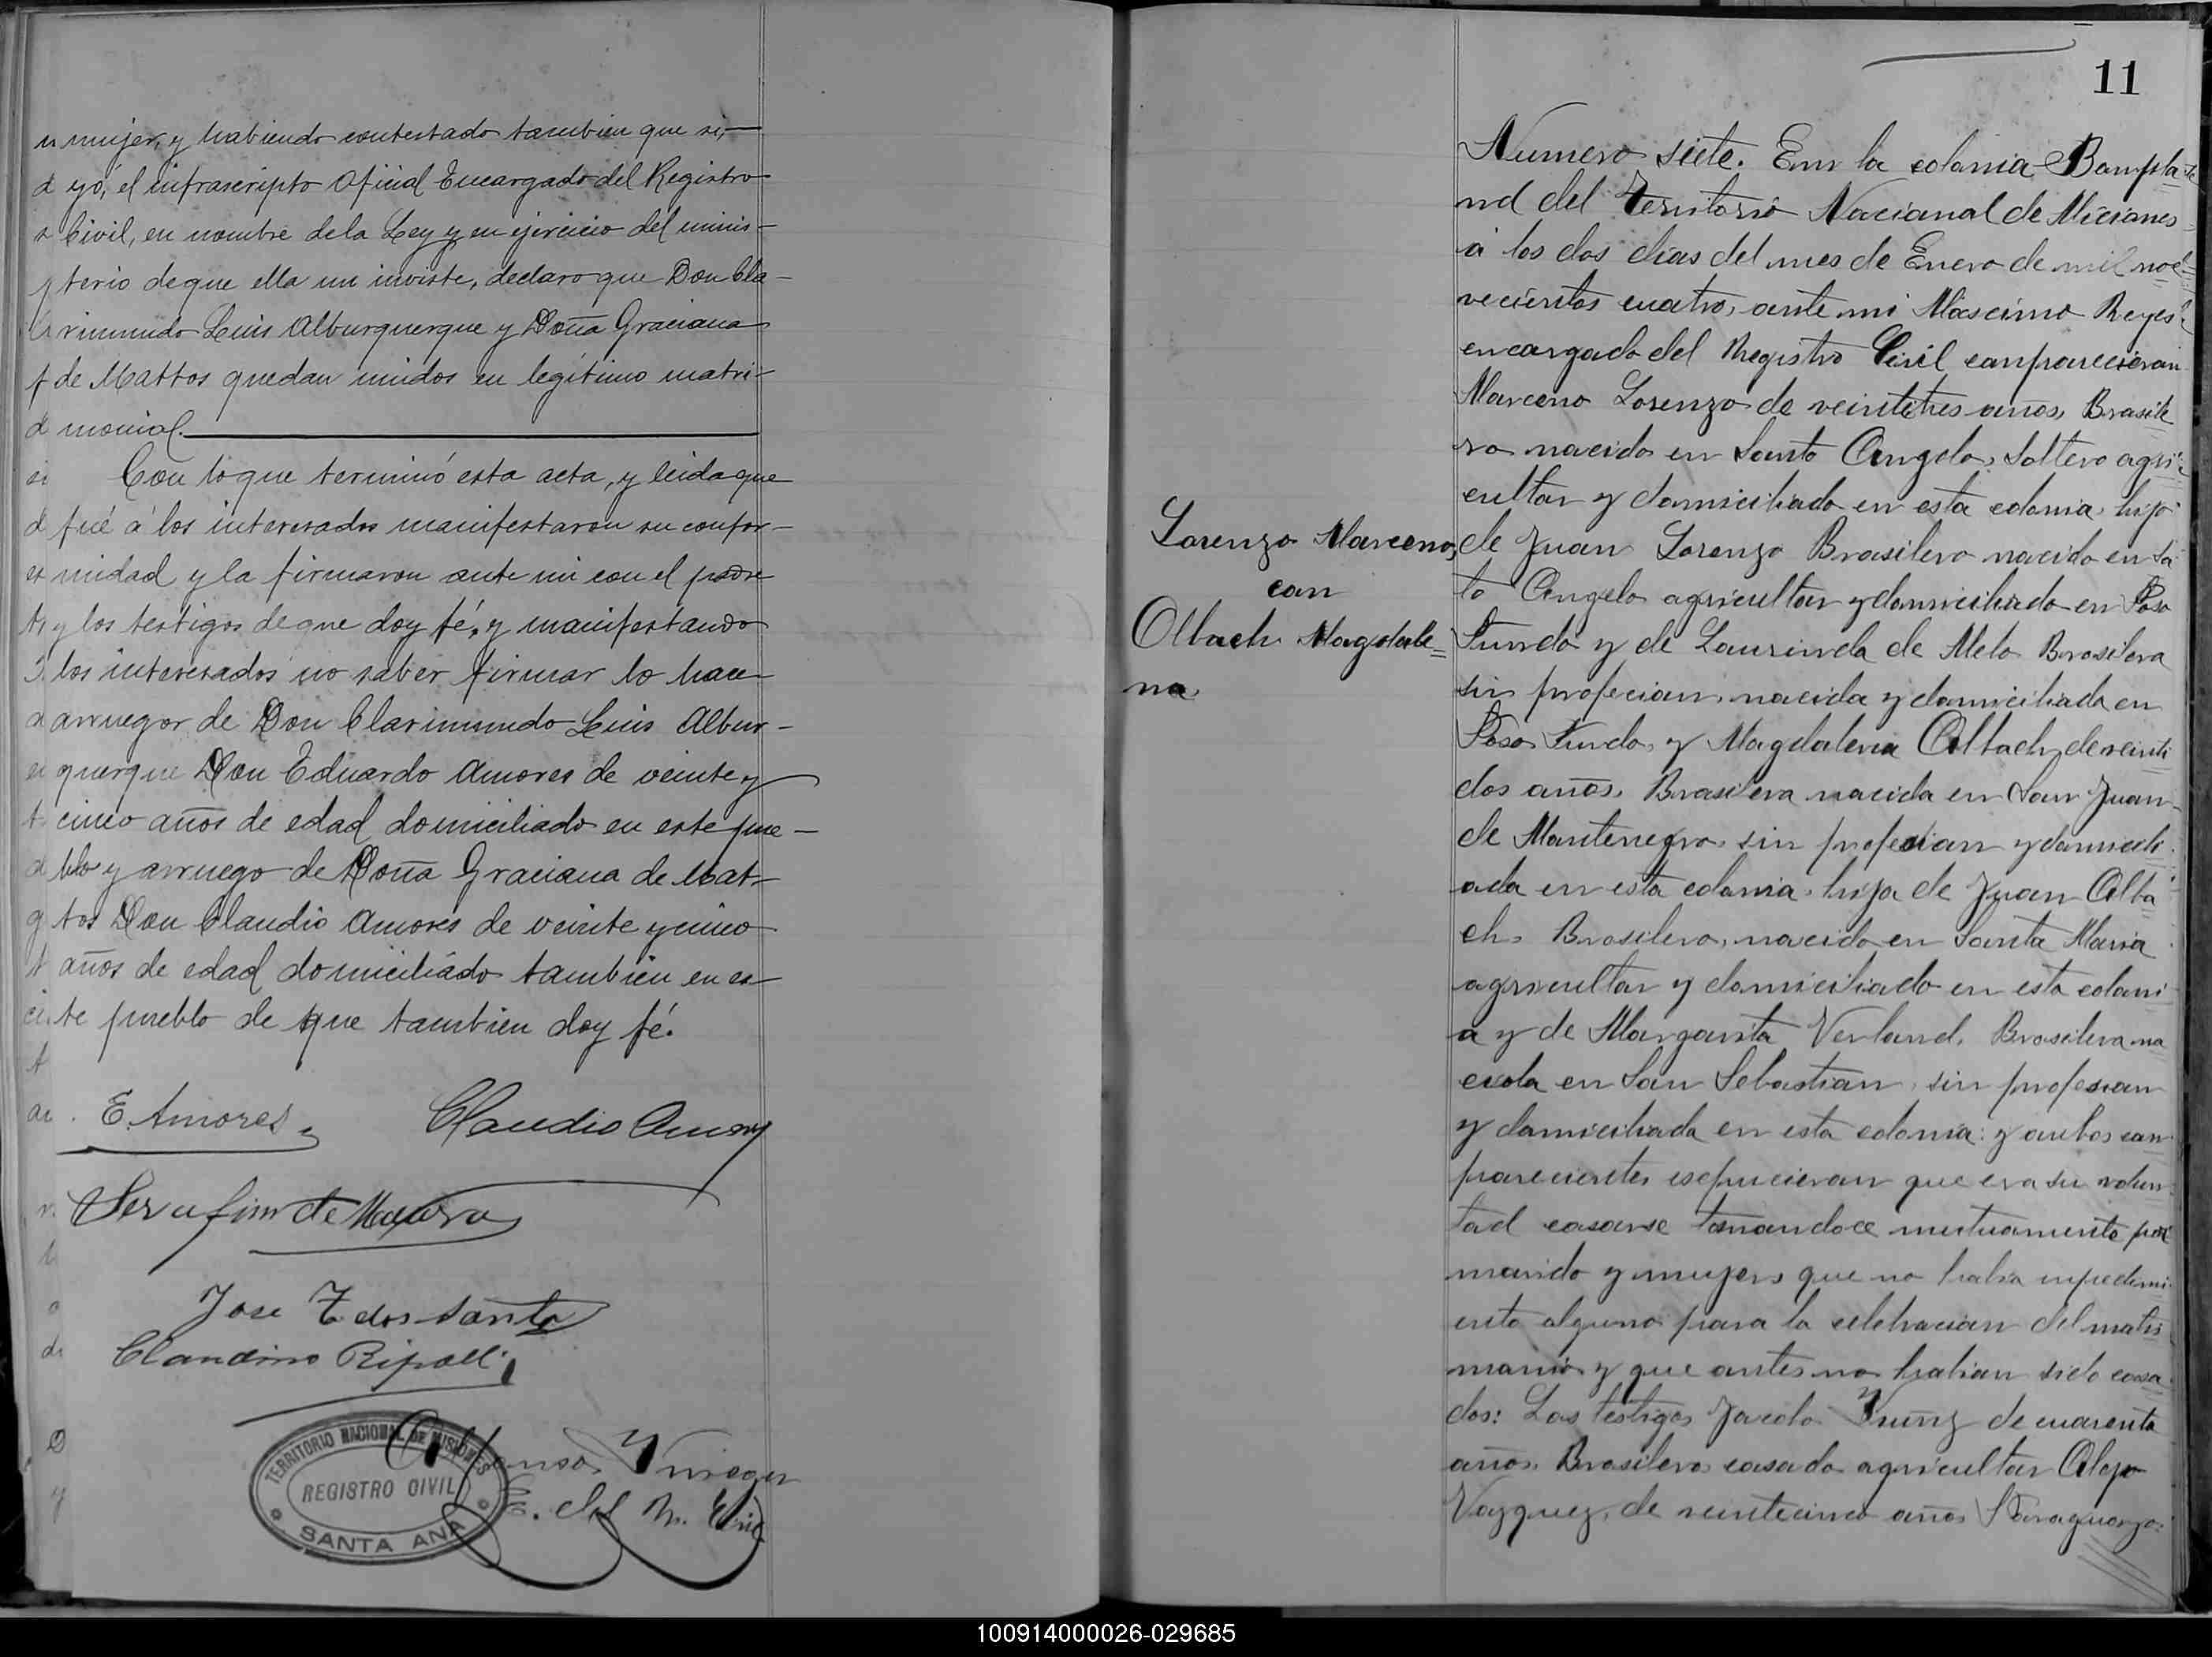 mujer, y habiendo contestado tambien que si,—
yó, el infrascripto Oficial Encargado del Registro
Civil, en nombre de la Ley y en ejercicio del minis-
terio de que ella me inviste, declaro que Don Cla-
rimundo Luis Alburquerque y Doña Graciana
de Mattos quedan unidos en legítimo matri-
monial.
Con lo que terminó esta acta, y leida que
fué á los interesados manifestaron su confor-
midad y la firmaron ante mi con el padre
y los testigos de que doy fé, y manifestando
los interesados no saber firmar lo hace
arruegor de Don Clarimundo Luis Albur-
querque Don Eduardo Amores de veinte y
cinco años de edad domiciliado en este pue-
blo y arruego de Doña Graciana de Mat-
tos Don Claudio Amores de veinte y cinco
años de edad domiciliádo tambien en es-
te pueblo de que tambien doy fé.
E. Amores
Claudio Amores
Serafim de
Jose T dos Santo
Claudino Ripoll
TERRITORIO NACIONAL DE MISIONES
REGISTRO CIVIL
SANTA ANA
E. del R. Civil
11
Numero siete. Em la colonia Bompla
nd del Territorio Nacional de Miciones
á los dos dias del mes de Enero de mil no
vecientos cuatro, ante mi Mascimo Reyes
encargado del Registro Civil conparecieron
Marceno Lorenzo de veintitres años, Brasile
ro nacido en Santo Angelo, Soltero agri
cultor y domiciliado en esta colonia, hijo
Lorenzo Marceno,
con
Olbach Magdale=
na
de Juan Lorenzo Brasilero nacido en Sa
to Angelo agricultor y domiciliado en Poso
Fundo y de Laurinda de Melo Brasilera
sin profecion, nacida y domiciliada en
Poso Fundo, y Magdalena Olbach, de veinti
dos años, Brasilera nacida en San Juan
de Montenegro, sin profesion y domicili
ada en esta colonia, hija de Juan Olba
ch, Brasilero, nacido en Santa Maria
agricultor y domiciliado en esta coloni
a y de Margarita Verland, Brasilera na
cida en San Sebastian, sin profesion
y domiciliada en esta colonia: y anbos con
parecientes espucieron que era su volun
tad casarse tomandoce mutuamente por
marido y mujer, que no habia inpedimi
ento alguno para la celebracion del matri
monio y que antes no habian sido casa
dos: Los testigos Jacolo de cuarenta
años, Brasilero casado agricultor Alejo
Vazquez, de veinticinco años Paraguayo:
100914000026-029685